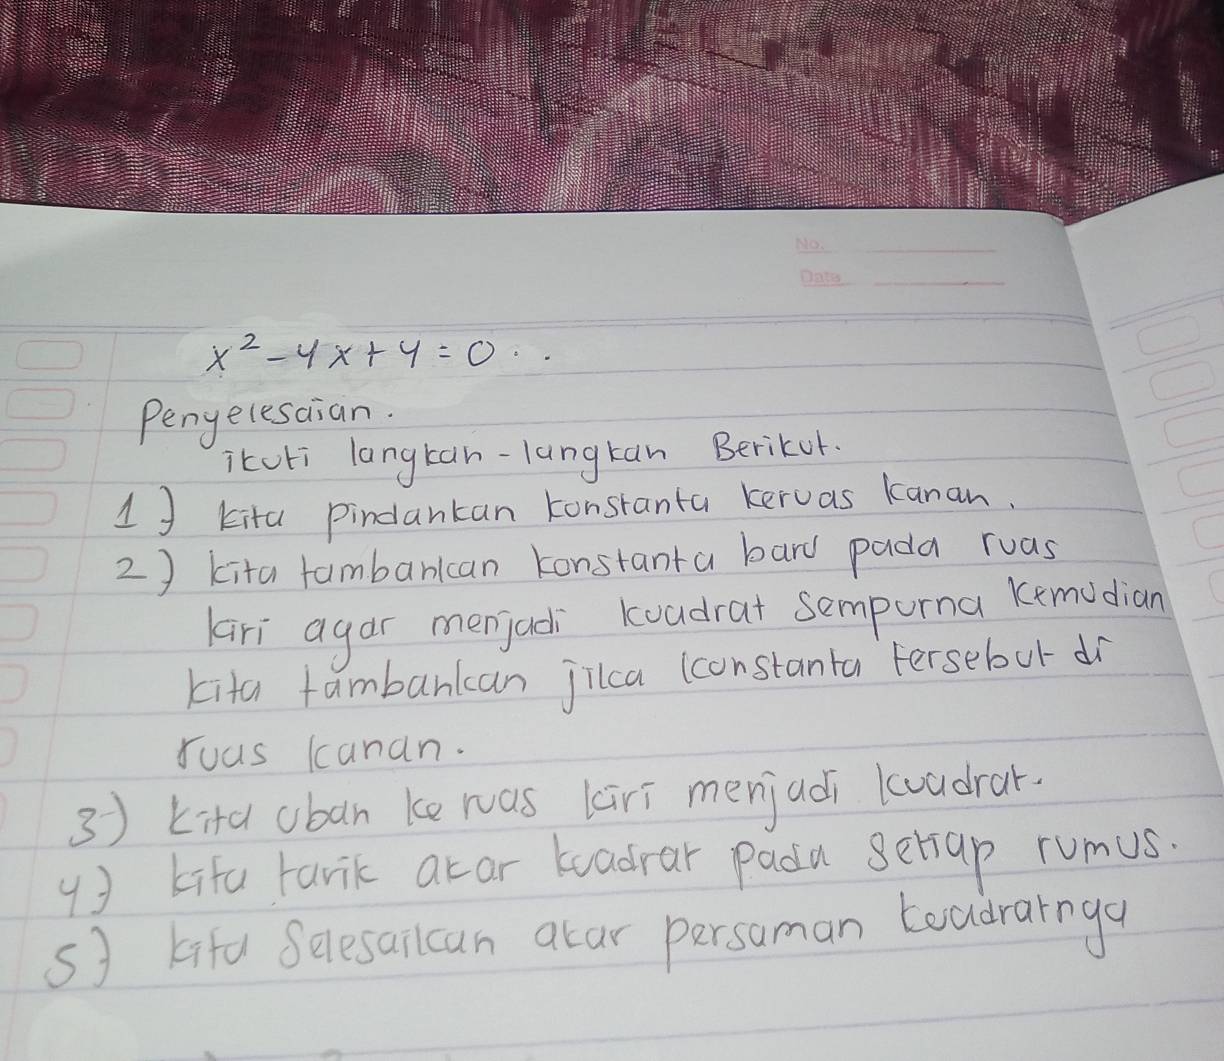 No.
Date
x² - 4x + 4 = 0 . .
Penyelesaian.
ikuti langkah - langkah Berikut.
1) kita pindahkan konstanta keruas kanan.
2) kita tambahkan konstanta baru pada ruas
kiri agar menjadi kuadrat sempurna kemudian
kita tambahkan jika konstanta tersebut di
ruas kanan.
3) kita ubah ke ruas kiri menjadi kuadrat.
4) kita tarik akar kuadrat pada setiap rumus.
5) kita Selesaikan akar persaman kuadratnya